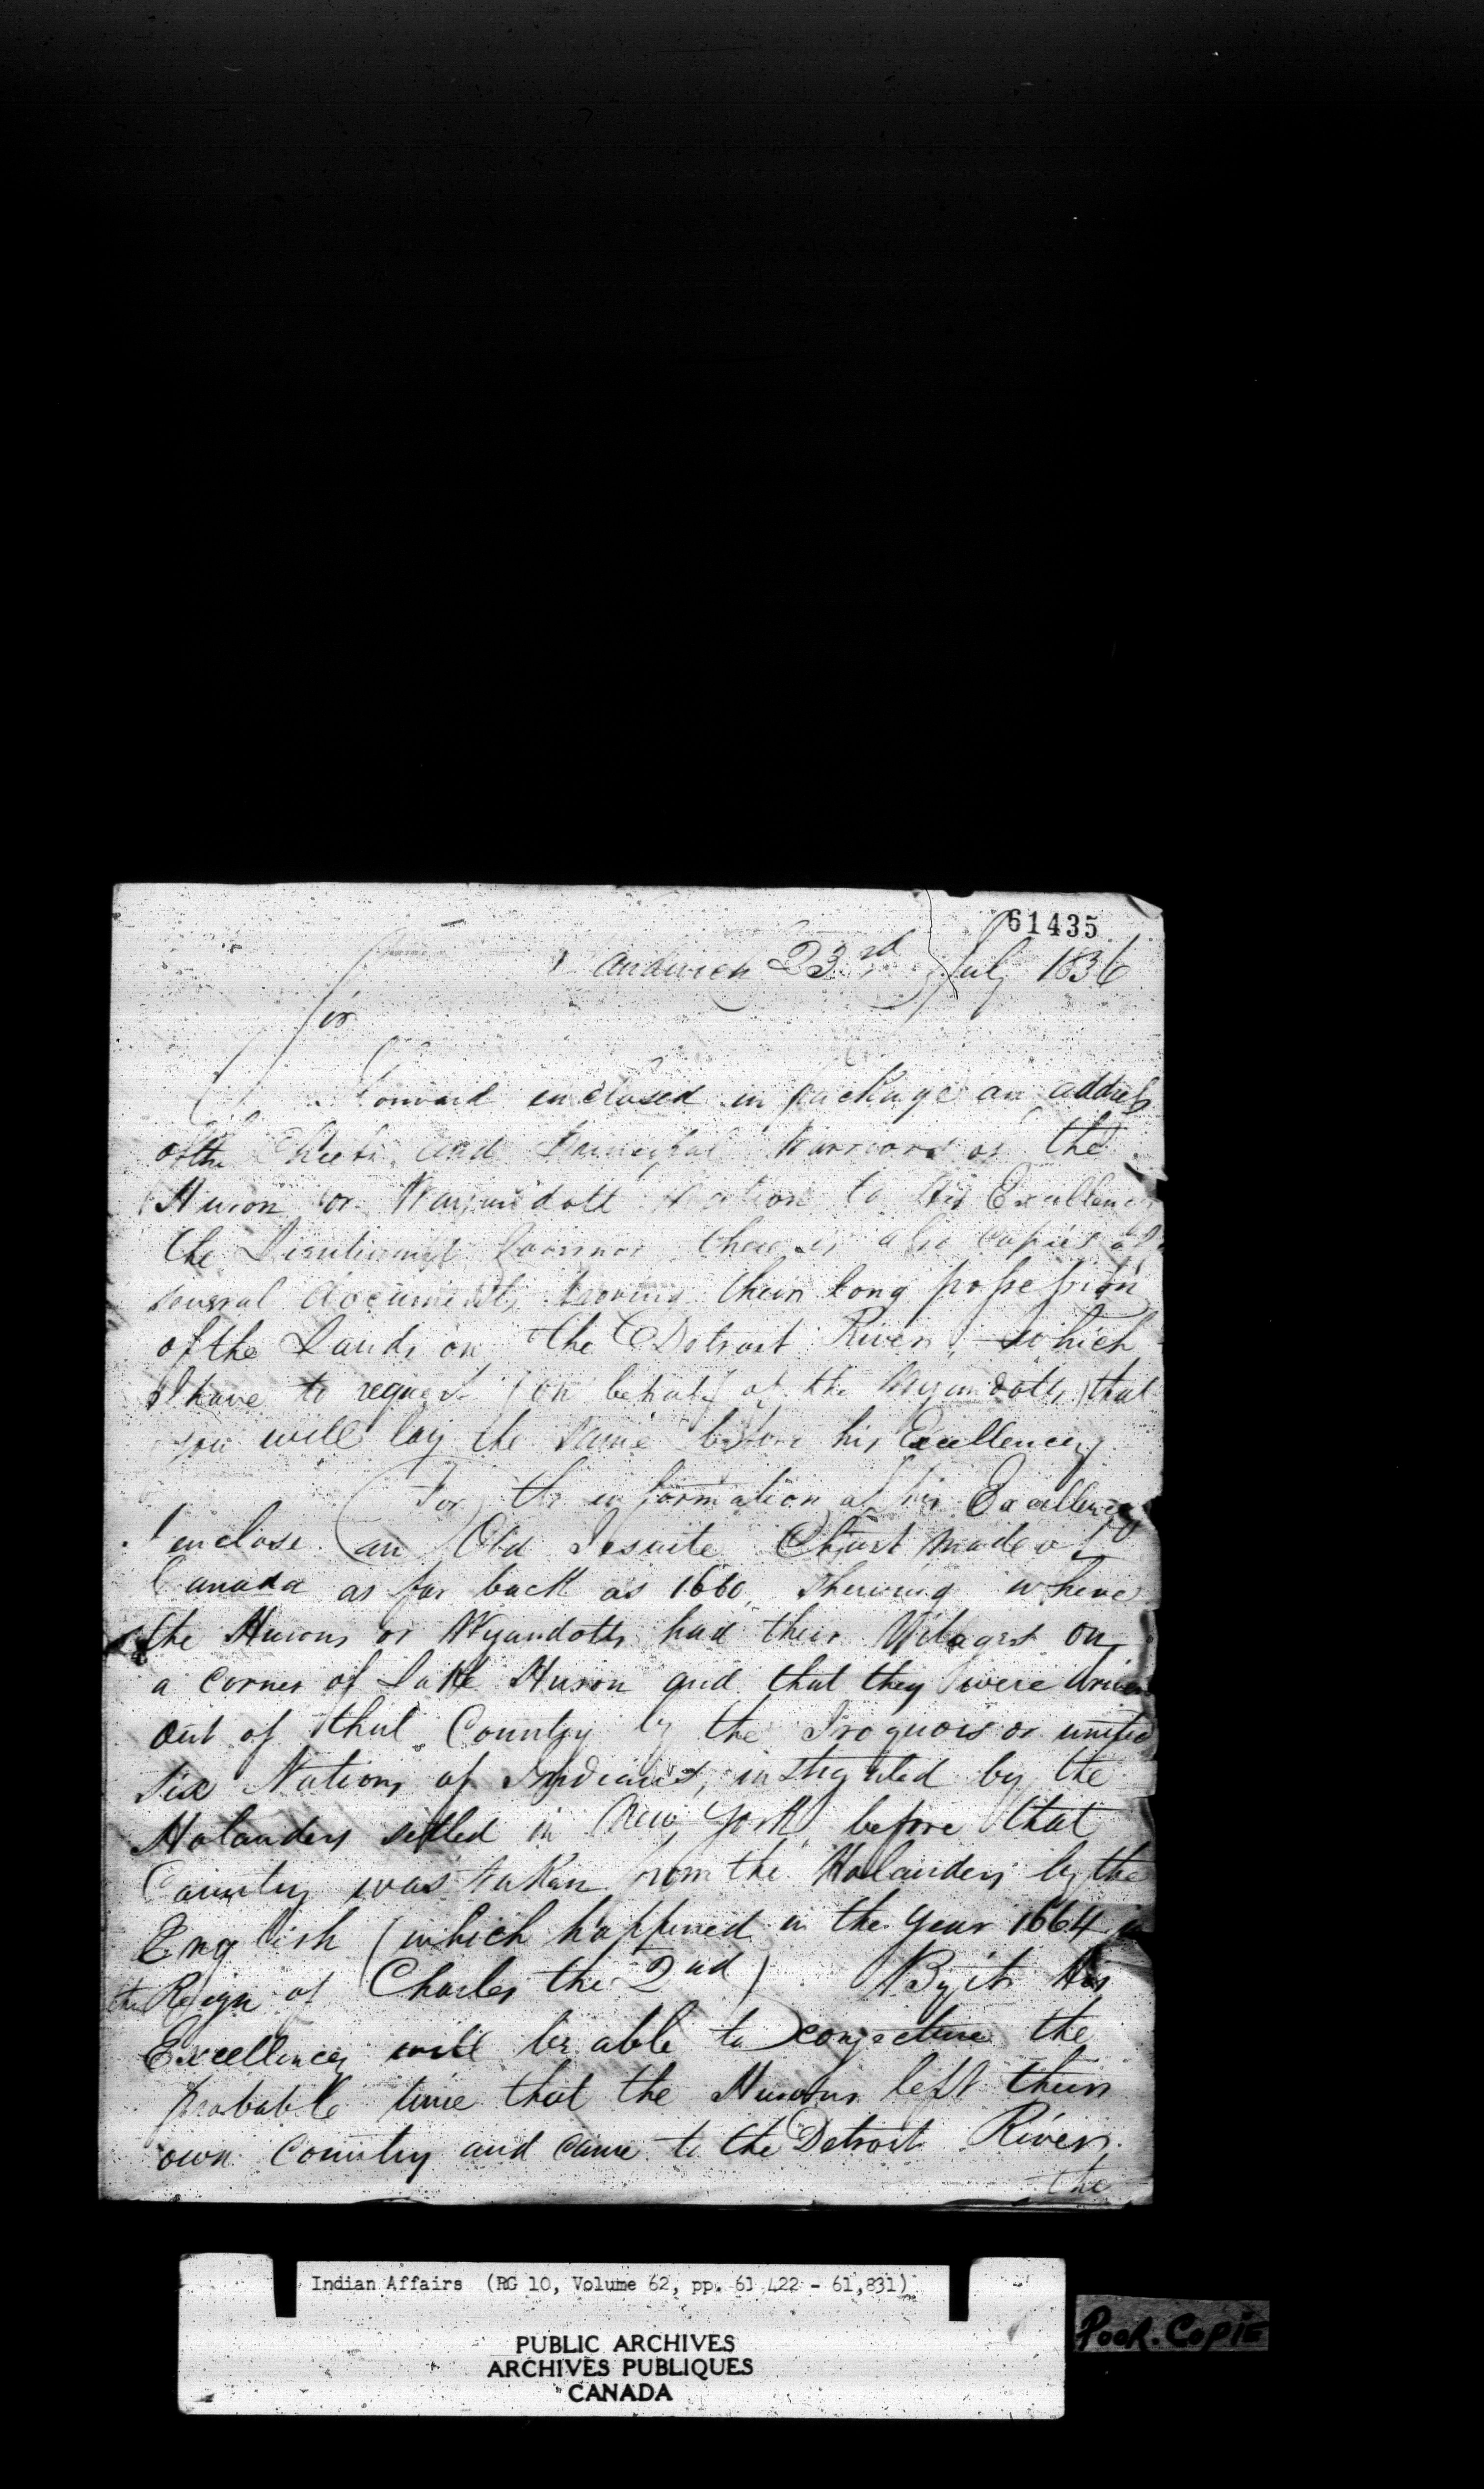 61435
Sandwich 23rd July 1836
Sir
I Forward enclosed in package an address
of the Chiefs and Principal Warriors of the
Huron or Wayandott Nation to His Excellency
the Lieutenant Governor there is also Copies of
several documents proving their long possession
of the Lands on the Detroit River, which
I have to request (on behalf of the Wyandotts) that
you will lay the same before his Excellency
For the information of his Excellency
I enclose an Old Jesuite Chart made of
Canada as far back as 1660, shewing where
the Hurons or Wyandotts had their Vilages on
a corner of Lake Huron and that they were driven
out of that Country by the Iroquois or united
six Nations of Indians, instigated by the
Holanders settled in New York before that
Country was taken from the Holanders by the
English (which happened in the year 1664 in
the Reign of Charles the 2nd) By it His
Excellency will be able to conjecture the
probable time that the Hurons left their
own Country and came to the Detroit River.
the
Indian Affairs (RG 10, Volume 62, pp. 61,422 - 61,831)
PUBLIC ARCHIVES
ARCHIVES PUBLIQUES
CANADA
POOR. COPIE